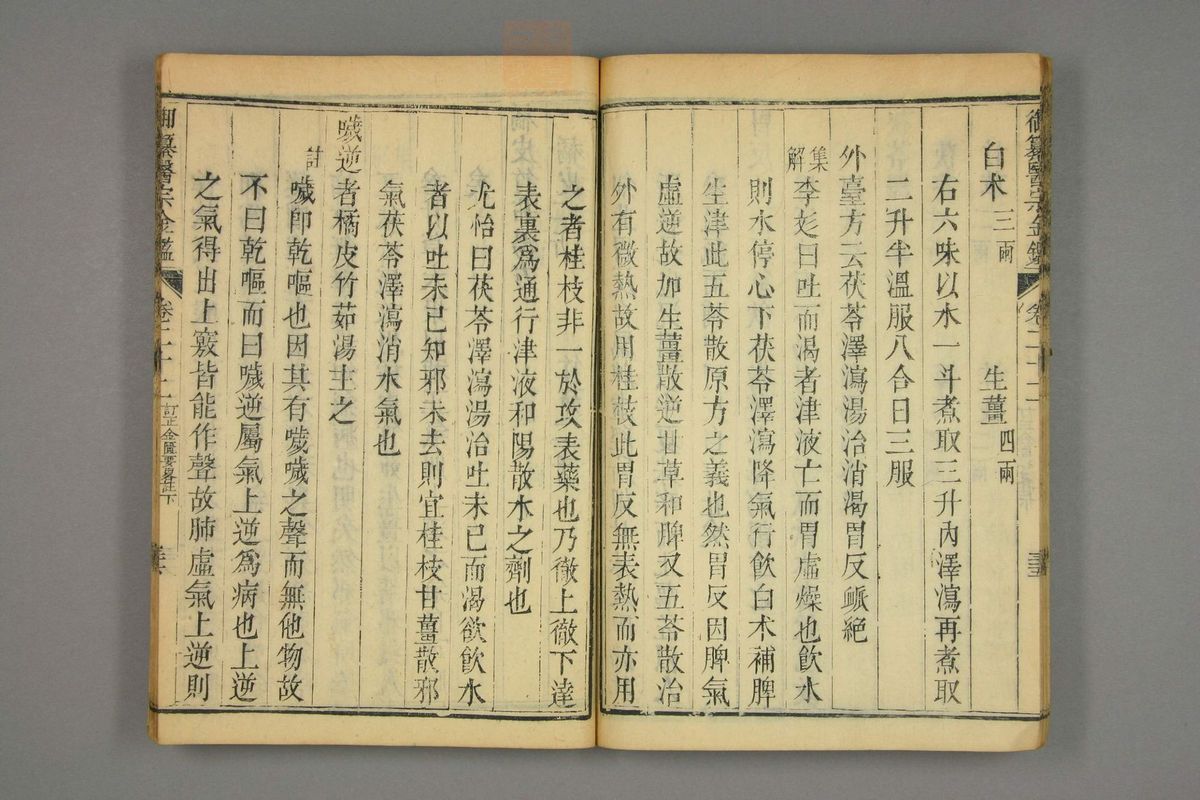 御纂醫宗金鑑 卷二十二
白术三兩 生薑四兩
右六味以水一斗煮取三升內澤瀉再煮取
二升半溫服八合日三服
外臺方云茯苓澤瀉湯治消渴胃反㽲絕
集解李彣曰吐而渴者津液亡而胃虛燥也飲水
則水停心下茯苓澤瀉降氣行飲白术補脾
生津此五苓散原方之義也然胃反因脾氣
虛逆故加生薑散逆甘草和脾又五苓散治
外有微熱故用桂枝此胃反無表熱而亦用
之者桂枝非一於攻表藥也乃徹上徹下達
表裏爲通行津液和陽散水之劑也
尤怡曰茯苓澤瀉湯治吐未已而渴欲飲水
者以吐未已知邪未去則宜桂枝甘薑散邪
氣茯苓澤瀉消水氣也
噦逆者橘皮竹茹湯主之
註噦卽乾嘔也因其有噦噦之聲而無他物故
不曰乾嘔而曰噦逆屬氣上逆爲病也上逆
之氣得出上竅皆能作聲故肺虛氣上逆則
御纂醫宗金鑑 卷二十二 訂正金匱要畧註下